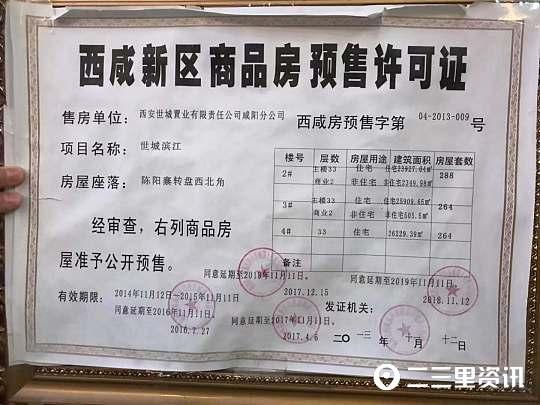 西咸新区商品房预售许可证
售房单位: 西安世城置业有限责任公司咸阳分公司
西咸房预售字第 04-2013-009 号
项目名称: 世城滨江
房屋座落: 陈阳寨转盘西北角
经审查,右列商品房
屋准予公开预售。
楼号 层数 房屋用途 建筑面积 房屋套数
2# 主楼33 住宅 住宅23927.04㎡ 288
商业2 非住宅 非住宅2349.98㎡
3# 主楼33 住宅 住宅25909.65㎡ 264
商业2 非住宅 非住宅503.5㎡
4# 33 住宅 26229.39㎡ 264
备注
同意延期至2018年11月11日。
2017.12.15
同意延期至2019年11月11日。
2018.11.12
有效期限: 2014年11月12日—2015年11月11日
同意延期至2016年11月11日。
2016.7.27
同意延期至2017年11月11日。
2017.4.6
发证机关:
二〇一三 年 十一 月 十二 日
二三里资讯